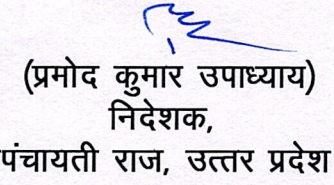 (प्रमोद कुमार उपाध्याय)
निदेशक,
पंचायती राज, उत्तर प्रदेश